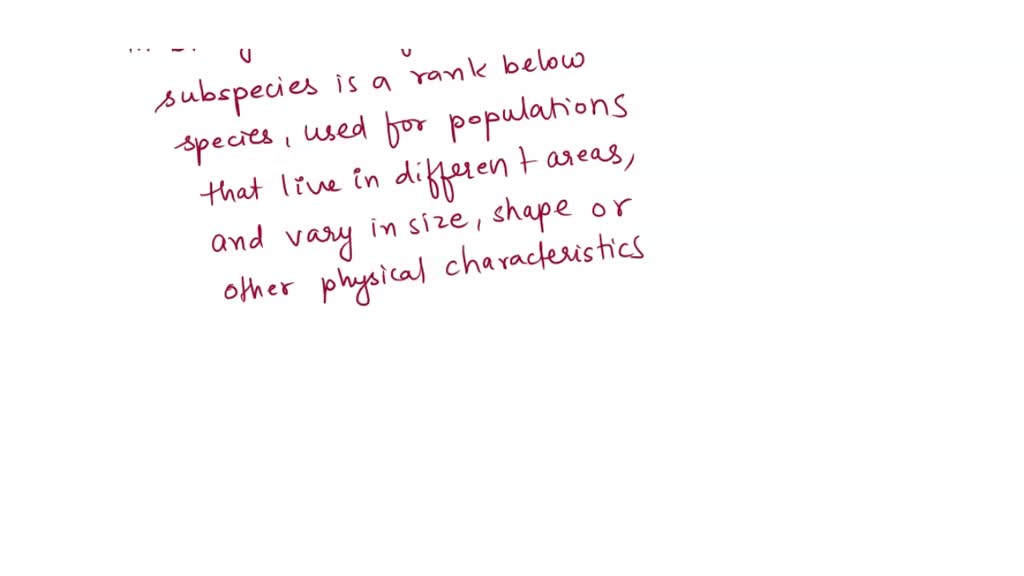 subspecies is a rank below
species, used for populations
that live in different areas,
and vary in size, shape or
other physical characteristics